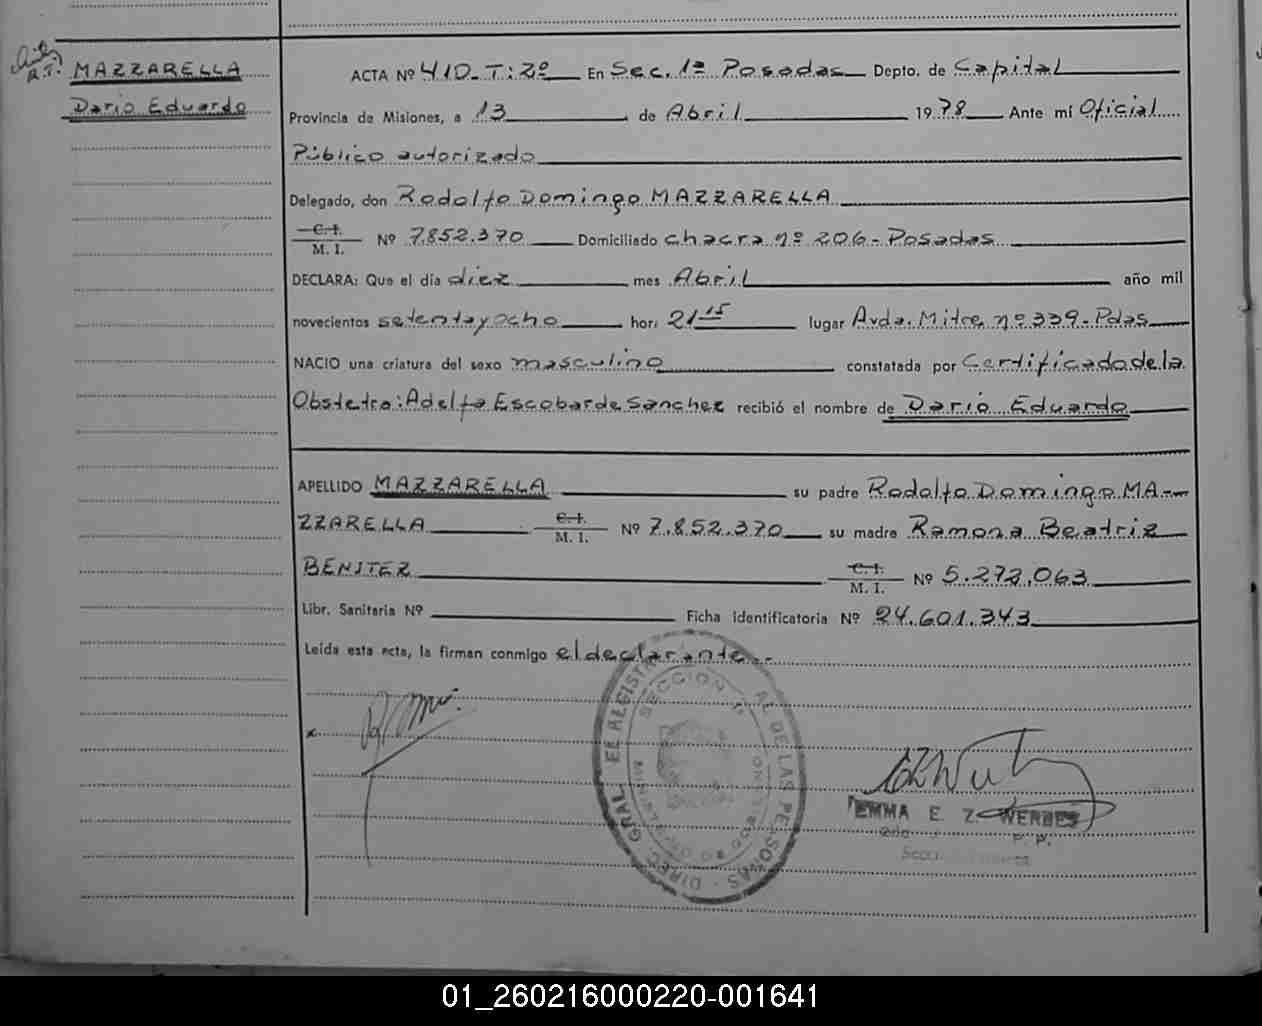 MAZZARELLA
Dario Eduardo
ACTA Nº 410. T: 2º En Sec. 1ª Posadas Depto. de Capital
Provincia de Misiones, a 13 de Abril 1978 Ante mí Oficial
Público autorizado
Delegado, don Rodolfo Domingo MAZZARELLA
C. I.
M. I. Nº 7.852.370 Domiciliado chacra nº 206 - Posadas
DECLARA: Que el día diez mes Abril año mil
novecientos setenta y ocho hora 21 15 lugar Avda. Mitre nº 339 - Pdas
NACIO una criatura del sexo masculino constatada por Certificado de la
Obstetra: Adelfa Escobar de Sanchez recibió el nombre de Dario Eduardo
APELLIDO MAZZARELLA su padre Rodolfo Domingo MA-
ZZARELLA C. I. M. I. Nº 7.852.370 su madre Ramona Beatriz
BENITEZ C. I. M. I. Nº 5.272.063
Libr. Sanitaria Nº Ficha identificatoria Nº 24.601.343
Leída esta acta, la firman conmigo el declarante.-
SECCION 1ª
DIREC. GRAL. DE LAS PERSONAS
EMMA E. Z. WERBES